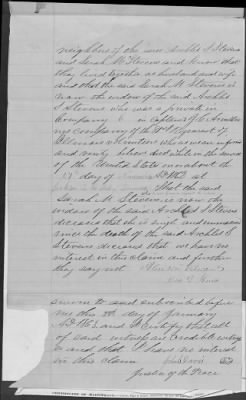 neighbors of the said Archles S Stevens
and Sarah M Stevens and know that
they lived together as husband and wife
and that the said Sarah M Stevens is
now the widow of the said Archles
S Stevens who was a private in
Company in Captain
company of the Regiment of
Illinois Volunteers who was an
and died while in the service
of the United States on or about the
17 day of AD 1862 at
That the said
Sarah M. Stevens is now the
widow of the said Archles S Stevens
deceased that she is single and unmarried
since the death of the said Archles S
Stevens deceased that we have no
interest in this claim and further
they say not
sworn to and subscribed before
me this day of January
AD 1863 and I certify that all
of said witnesses are credible
and that I have no interest
in this claim
Justice of the Peace